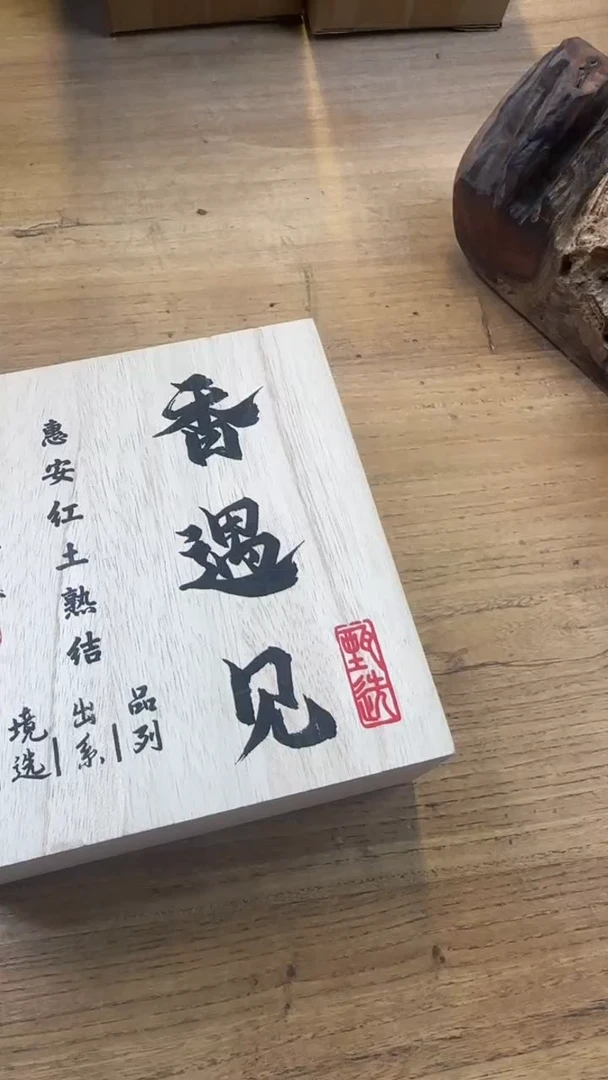 香遇见
甄选
惠安红土熟结
境出品
选系列